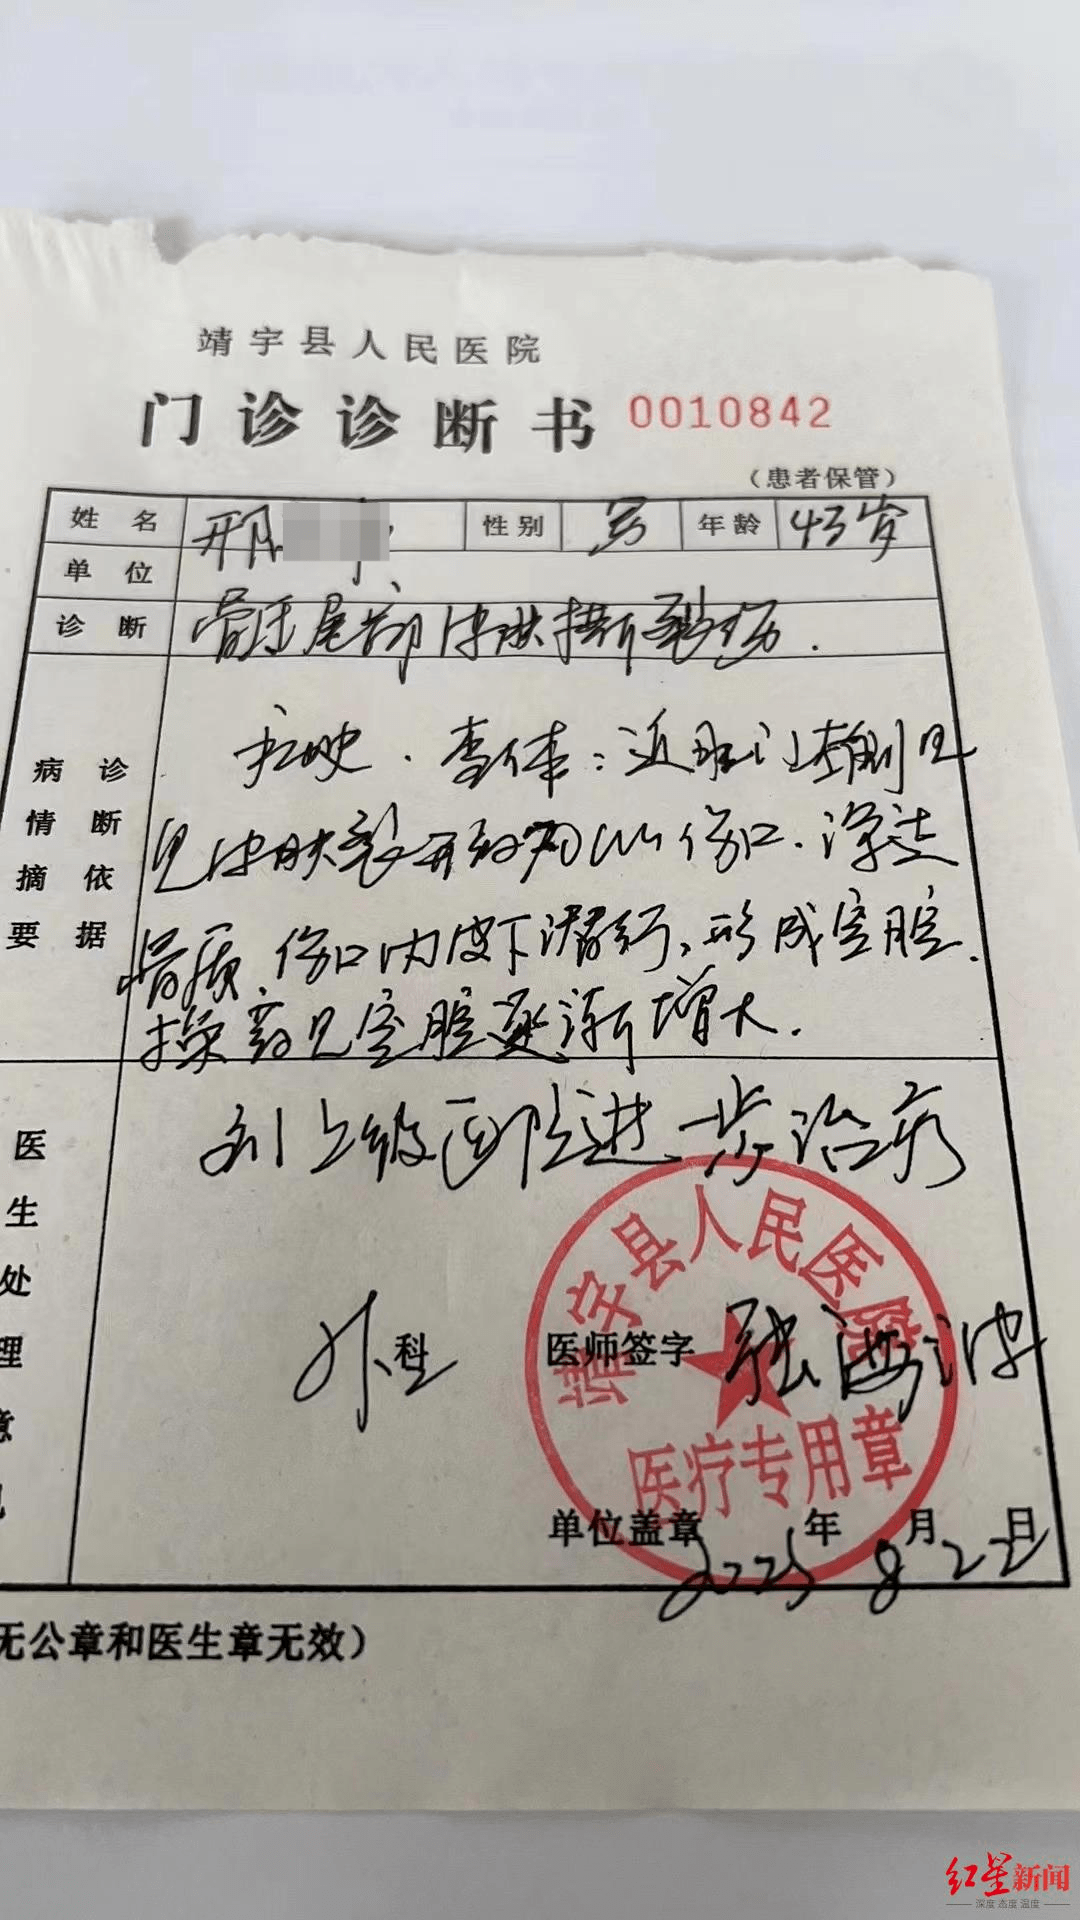 靖宇县人民医院
门诊诊断书 0010842
（患者保管）
姓名 邢 性别 男 年龄 43岁
单位
诊断 骶尾部皮肤挫裂伤.
病情摘要 诊断依据
病史.查体:近肛门左侧见
见皮肤裂开 伤口.深达
骨质,伤口内皮下潜行,形成空腔.
换药见空腔逐渐增大.
医生处理意见
到上级医院进一步治疗
外科 医师签字 张海波
靖宇县人民医院
医疗专用章
单位盖章 2025年8月22日
无公章和医生章无效）
红星新闻
深度 态度 温度